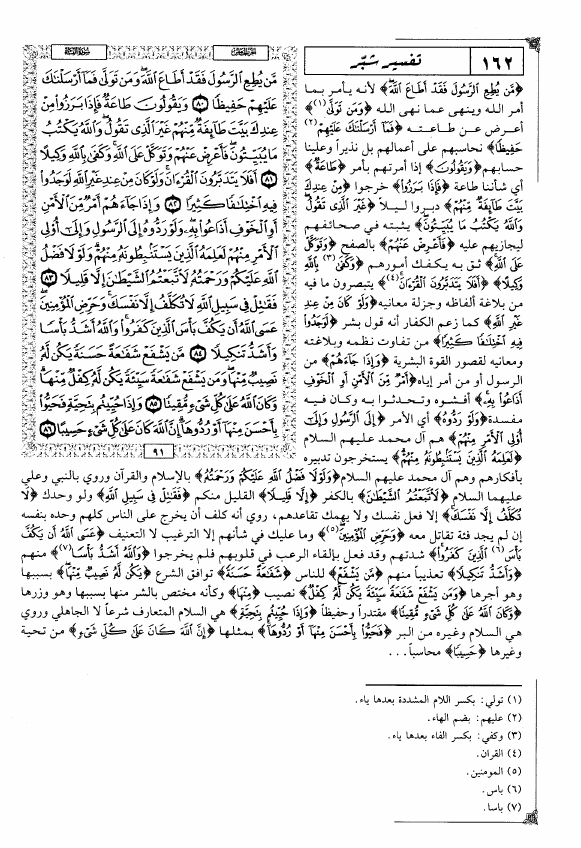 ١٦٢
تفسير شبّر
الجزء الخامس
سورة النساء
﴿مَّن يُطِعِ ٱلرَّسُولَ فَقَدْ أَطَاعَ ٱللَّهَ﴾ لأنه يأمر بما
أمر الله وينهى عما نهى الله ﴿وَمَن تَوَلَّىٰ﴾(١)
أعرض عن طاعته ﴿فَمَآ أَرْسَلْنَٰكَ عَلَيْهِمْ(٢)
حَفِيظًا﴾ تحاسبهم على أعمالهم بل نذيراً وعلينا
حسابهم ﴿وَيَقُولُونَ﴾ إذا أمرتهم بأمر ﴿طَاعَةٌ﴾
أي شأننا طاعة ﴿فَإِذَا بَرَزُوا۟﴾ خرجوا ﴿مِنْ عِندِكَ
بَيَّتَ طَآئِفَةٌ مِّنْهُمْ﴾ دبروا ليلاً ﴿غَيْرَ ٱلَّذِى تَقُولُ
وَٱللَّهُ يَكْتُبُ مَا يُبَيِّتُونَ﴾ يثبته في صحائفهم
ليجازيهم عليه ﴿فَأَعْرِضْ عَنْهُمْ﴾ بالصفح ﴿وَتَوَكَّلْ
عَلَى ٱللَّهِ﴾ ثق به يكفك أمورهم ﴿وَكَفَىٰ(٣) بِٱللَّهِ
وَكِيلًا﴾ ﴿أَفَلَا يَتَدَبَّرُونَ ٱلْقُرْءَانَ﴾(٤) يتبصرون ما فيه
من بلاغة ألفاظه وجزلة معانيه ﴿وَلَوْ كَانَ مِنْ عِندِ
غَيْرِ ٱللَّهِ﴾ كما زعم الكفار أنه قول بشر ﴿لَوَجَدُوا۟
فِيهِ ٱخْتِلَٰفًا كَثِيرًا﴾ من تفاوت نظمه وبلاغته
ومعانيه لقصور القوة البشرية ﴿وَإِذَا جَآءَهُمْ﴾ من
الرسول أو من أمر إياه ﴿أَمْرٌ مِّنَ ٱلْأَمْنِ أَوِ ٱلْخَوْفِ
أَذَاعُوا۟ بِهِۦ﴾ أفشوه وتحدثوا به وكان فيه
مفسدة ﴿وَلَوْ رَدُّوهُ﴾ أي الأمر ﴿إِلَى ٱلرَّسُولِ وَإِلَىٰٓ
أُو۟لِى ٱلْأَمْرِ مِنْهُمْ﴾ هم آل محمد عليهم السلام
﴿لَعَلِمَهُ ٱلَّذِينَ يَسْتَنۢبِطُونَهُۥ مِنْهُمْ﴾ يستخرجون تدبيره
مَّن يُطِعِ ٱلرَّسُولَ فَقَدْ أَطَاعَ ٱللَّهَ وَمَن تَوَلَّىٰ فَمَآ أَرْسَلْنَٰكَ
عَلَيْهِمْ حَفِيظًا ٨٠ وَيَقُولُونَ طَاعَةٌ فَإِذَا بَرَزُوا۟ مِنْ
عِندِكَ بَيَّتَ طَآئِفَةٌ مِّنْهُمْ غَيْرَ ٱلَّذِى تَقُولُ وَٱللَّهُ يَكْتُبُ
مَا يُبَيِّتُونَ فَأَعْرِضْ عَنْهُمْ وَتَوَكَّلْ عَلَى ٱللَّهِ وَكَفَىٰ بِٱللَّهِ وَكِيلًا
٨١ أَفَلَا يَتَدَبَّرُونَ ٱلْقُرْءَانَ وَلَوْ كَانَ مِنْ عِندِ غَيْرِ ٱللَّهِ لَوَجَدُوا۟
فِيهِ ٱخْتِلَٰفًا كَثِيرًا ٨٢ وَإِذَا جَآءَهُمْ أَمْرٌ مِّنَ ٱلْأَمْنِ
أَوِ ٱلْخَوْفِ أَذَاعُوا۟ بِهِۦ وَلَوْ رَدُّوهُ إِلَى ٱلرَّسُولِ وَإِلَىٰٓ أُو۟لِى
ٱلْأَمْرِ مِنْهُمْ لَعَلِمَهُ ٱلَّذِينَ يَسْتَنۢبِطُونَهُۥ مِنْهُمْ وَلَوْلَا فَضْلُ
ٱللَّهِ عَلَيْكُمْ وَرَحْمَتُهُۥ لَٱتَّبَعْتُمُ ٱلشَّيْطَٰنَ إِلَّا قَلِيلًا ٨٣
فَقَٰتِلْ فِى سَبِيلِ ٱللَّهِ لَا تُكَلَّفُ إِلَّا نَفْسَكَ وَحَرِّضِ ٱلْمُؤْمِنِينَ
عَسَى ٱللَّهُ أَن يَكُفَّ بَأْسَ ٱلَّذِينَ كَفَرُوا۟ وَٱللَّهُ أَشَدُّ بَأْسًا
وَأَشَدُّ تَنكِيلًا ٨٤ مَّن يَشْفَعْ شَفَٰعَةً حَسَنَةً يَكُن لَّهُۥ
نَصِيبٌ مِّنْهَا وَمَن يَشْفَعْ شَفَٰعَةً سَيِّئَةً يَكُن لَّهُۥ كِفْلٌ مِّنْهَا
وَكَانَ ٱللَّهُ عَلَىٰ كُلِّ شَىْءٍ مُّقِيتًا ٨٥ وَإِذَا حُيِّيتُم بِتَحِيَّةٍ فَحَيُّوا۟
بِأَحْسَنَ مِنْهَآ أَوْ رُدُّوهَآ إِنَّ ٱللَّهَ كَانَ عَلَىٰ كُلِّ شَىْءٍ حَسِيبًا ٨٦
٩١
بأفكارهم وهم آل محمد عليهم السلام ﴿وَلَوْلَا فَضْلُ ٱللَّهِ عَلَيْكُمْ وَرَحْمَتُهُۥ﴾ بالإسلام والقرآن وروي بالنبي وعلي
عليهما السلام ﴿لَٱتَّبَعْتُمُ ٱلشَّيْطَٰنَ﴾ بالكفر ﴿إِلَّا قَلِيلًا﴾ القليل منكم ﴿فَقَٰتِلْ فِى سَبِيلِ ٱللَّهِ﴾ ولو وحدك ﴿لَا
تُكَلَّفُ إِلَّا نَفْسَكَ﴾ إلا فعل نفسك ولا يهمك تقاعدهم، روي أنه كلف أن يخرج على الناس كلهم وحده بنفسه
إن لم يجد فئة تقاتل معه ﴿وَحَرِّضِ ٱلْمُؤْمِنِينَ﴾(٥) وما عليك في شأنهم إلا الترغيب لا التعنيف ﴿عَسَى ٱللَّهُ أَن يَكُفَّ
بَأْسَ(٦) ٱلَّذِينَ كَفَرُوا۟﴾ شدتهم وقد فعل بإلقاء الرعب في قلوبهم فلم يخرجوا ﴿وَٱللَّهُ أَشَدُّ بَأْسًا﴾(٧) منهم
﴿وَأَشَدُّ تَنكِيلًا﴾ تعذيباً منهم ﴿مَّن يَشْفَعْ﴾ للناس ﴿شَفَٰعَةً حَسَنَةً﴾ توافق الشرع ﴿يَكُن لَّهُۥ نَصِيبٌ مِّنْهَا﴾ بسببها
وهو أجرها ﴿وَمَن يَشْفَعْ شَفَٰعَةً سَيِّئَةً يَكُن لَّهُۥ كِفْلٌ﴾ نصيب ﴿مِّنْهَا﴾ وكأنه مختص بالشر منها بسببها وهو وزرها
﴿وَكَانَ ٱللَّهُ عَلَىٰ كُلِّ شَىْءٍ مُّقِيتًا﴾ مقتدراً وحفيظاً ﴿وَإِذَا حُيِّيتُم بِتَحِيَّةٍ﴾ هي السلام المتعارف شرعاً لا الجاهلي وروي
هي السلام وغيره من البر ﴿فَحَيُّوا۟ بِأَحْسَنَ مِنْهَآ أَوْ رُدُّوهَآ﴾ بمثلها ﴿إِنَّ ٱللَّهَ كَانَ عَلَىٰ كُلِّ شَىْءٍ﴾ من تحية
وغيرها ﴿حَسِيبًا﴾ محاسباً...
(١) تولي: بكسر اللام المشددة بعدها ياء.
(٢) عليهم: بضم الهاء.
(٣) وكفي: بكسر الفاء بعدها ياء.
(٤) القران.
(٥) المومنين.
(٦) باس.
(٧) باسا.